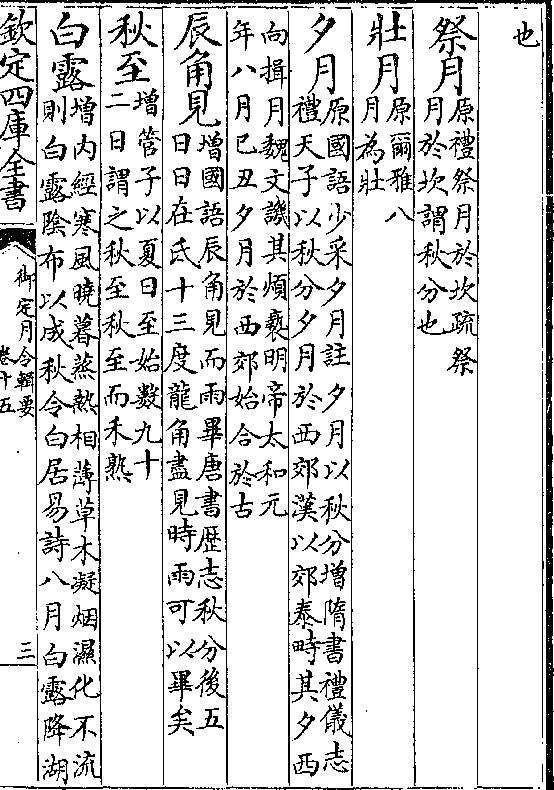 也
祭月原禮祭月於坎疏祭
月於坎謂秋分也
壯月原爾雅八
月為壯
夕月原國語少采夕月註夕月以秋分增隋書禮儀志
禮天子以秋分夕月於西郊漢以郊泰畤其夕西
向揖月魏文譏其煩䙝明帝太和元
年八月己丑夕月於西郊始合於古
辰角見增國語辰角見而雨畢唐書歴志秋分後五
日日在氐十三度龍角盡見時雨可以畢矣
秋至增管子以夏日至始數九十
二日謂之秋至秋至而禾熟
白露增内經寒風曉暮蒸熱相薄草木凝烟濕化不流
則白露陰布以成秋令白居易詩八月白露降湖
欽定四庫全書
御定月令輯要
卷十五
三